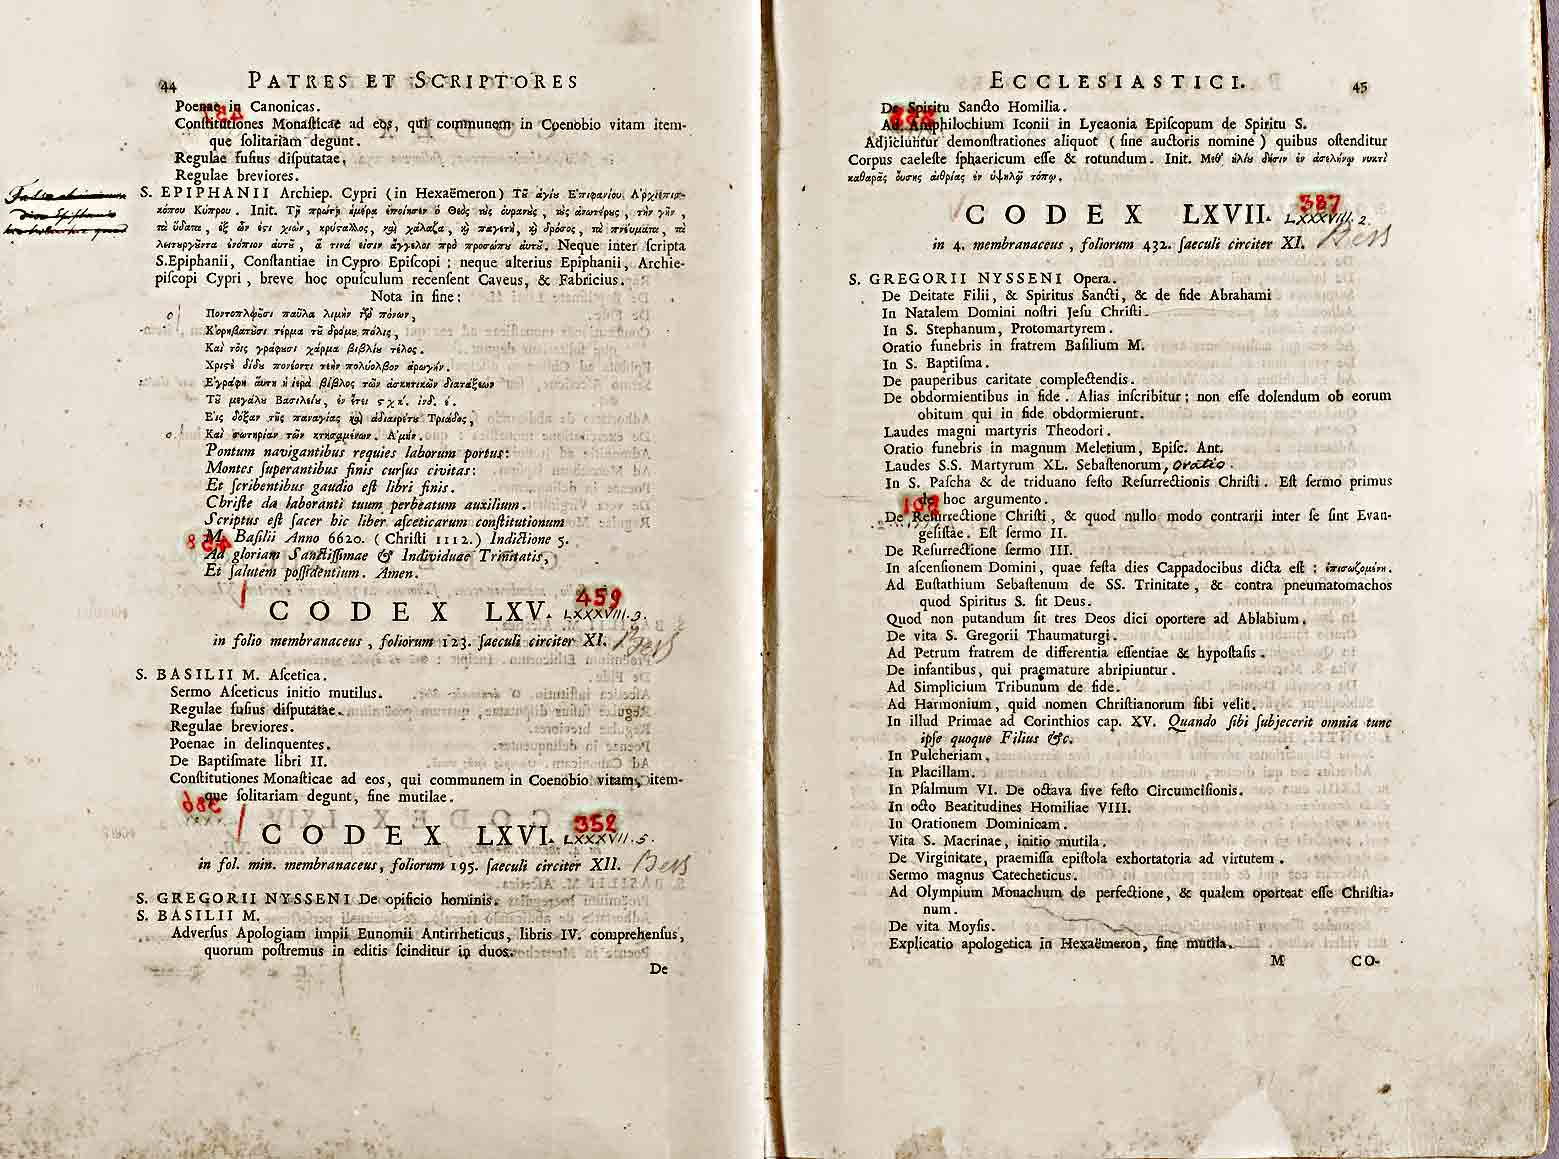 44 PATRES ET SCRIPTORES
Poenae in Canonicas.
Conſtitutiones Monaſticae ad eos, qui communem in Coenobio vitam item-
que ſolitariam degunt.
Regulae fuſius diſputatae.
Regulae breviores.
S. EPIPHANII Archiep. Cypri (in Hexaëmeron) Τȣ̃ ἁγίȣ Ἐπιφανίου Ἀρχιεπισ-
κόπου Κύπρου. Init. Τῇ πρώτῃ ἡμέρᾳ ἐποίησεν ὁ Θεὸς τὰς ȣ̓ρανȣ̀ς, τȣ̀ς ἀνωτέρȣς, τὴν γῆν,
τὰ ὕδατα, ἐξ ὧν ἐστι χιὼν, κρύσταλλος, καὶ χάλαζα, καὶ παγετὴ, καὶ δρόσος, τὰ πνεύματα, τὰ
λειτουργȣ͂ντα ἐνόπιον αὐτȣ̃, ἅ τινά εἰσιν ἄγγελοι πρὸ προσώπȣ αὐτȣ̃. Neque inter ſcripta
S.Epiphanii, Conſtantiae in Cypro Epiſcopi; neque alterius Epiphanii, Archie-
piſcopi Cypri, breve hoc opuſculum recenſent Caveus, & Fabricius.
Nota in fine:
Ποντοπλȣ̃σι παῦλα λιμὴν τῶν πόνων,
Κορηβατȣ̃σι τέρμα τȣ̃ δρόμȣ πόλις,
Καὶ τοῖς γράφȣσι χάρμα βιβλίȣ τέλος.
Χριστὲ δίδȣ πονέοντι τεὴν πολύολβον ἀρωγήν.
Ἐγράφη αὕτη ἡ ἱερὰ βίβλος τῶν ἀσκητικῶν διατάξεων
Τȣ̃ μεγάλȣ Βασιλείȣ, ἐν ἔτει ϛχκ. ἰνδ. έ.
Εἰς δόξαν τῆς παναγίας καὶ ἀδιαιρέτȣ Τριάδος,
Καὶ σωτηρίαν τῶν κτησαμένων. Ἀμήν.
Pontum navigantibus requies laborum portus:
Montes ſuperantibus finis curſus civitas:
Et ſcribentibus gaudio eſt libri finis.
Chriſte da laboranti tuum perbeatum auxilium.
Scriptus eſt ſacer hic liber aſceticarum conſtitutionum
M. Baſilii Anno 6620. (Chriſti 1112.) Indictione 5.
Ad gloriam Sanctiſſimae & Individuae Trinitatis,
Et ſalutem poſſidentium. Amen.
CODEX LXV. 459 LXXXVIII.3.
in folio membranaceus, foliorum 123. ſaeculi circiter XI. Bess
S. BASILII M. Aſcetica.
Sermo Aſceticus initio mutilus.
Regulae fuſius diſputatae.
Regulae breviores.
Poenae in delinquentes.
De Baptiſmate libri II.
Conſtitutiones Monaſticae ad eos, qui communem in Coenobio vitam, item-
que ſolitariam degunt, fine mutilae.
CODEX LXVI. 352 LXXXVII.5.
in fol. min. membranaceus, foliorum 195. ſaeculi circiter XII. Bess
S. GREGORII NYSSENI De opificio hominis.
S. BASILII M.
Adverſus Apologiam impii Eunomii Antirrheticus, libris IV. comprehenſus,
quorum poſtremus in editis ſcinditur in duos.
De
ECCLESIASTICI. 45
De Spiritu Sancto Homilia.
Ad Amphilochium Iconii in Lycaonia Epiſcopum de Spiritu S.
Adjiciuntur demonſtrationes aliquot (ſine auctoris nomine) quibus oſtenditur
Corpus caeleſte ſphaericum eſſe & rotundum. Init. Μεθ' ἡλίȣ δύσιν ἐν ἀσελήνῳ νυκτὶ
καθαρᾶς ȣ̓́σης αἰθρίας ἐν ὑψηλῷ τόπῳ.
CODEX LXVII. 387 LXXXVIII.2.
in 4. membranaceus, foliorum 432. ſaeculi circiter XI. Bess
S. GREGORII NYSSENI Opera.
De Deitate Filii, & Spiritus Sancti, & de fide Abrahami
In Natalem Domini noſtri Jeſu Chriſti.
In S. Stephanum, Protomartyrem.
Oratio funebris in fratrem Baſilium M.
In S. Baptiſma.
De pauperibus caritate complectendis.
De obdormientibus in fide. Alias inſcribitur; non eſſe dolendum ob eorum
obitum qui in fide obdormierunt.
Laudes magni martyris Theodori.
Oratio funebris in magnum Meletium, Epiſc. Ant.
Laudes S.S. Martyrum XL. Sebaſtenorum, oratio.
In S. Paſcha & de triduano feſto Reſurrectionis Chriſti. Eſt ſermo primus
de hoc argumento.
De Reſurrectione Chriſti, & quod nullo modo contrarii inter ſe ſint Evan-
geliſtae. Eſt ſermo II.
De Reſurrectione ſermo III.
In aſcenſionem Domini, quae feſta dies Cappadocibus dicta eſt: ἐπισωζομένη.
Ad Euſtathium Sebaſtenum de SS. Trinitate, & contra pneumatomachos
quod Spiritus S. ſit Deus.
Quod non putandum ſit tres Deos dici oportere ad Ablabium.
De vita S. Gregorii Thaumaturgi.
Ad Petrum fratrem de differentia eſſentiae & hypoſtaſis.
De infantibus, qui praemature abripiuntur.
Ad Simplicium Tribunum de fide.
Ad Harmonium, quid nomen Chriſtianorum ſibi velit.
In illud Primae ad Corinthios cap. XV. Quando ſibi ſubjecerit omnia tunc
ipſe quoque Filius &c.
In Pulcheriam.
In Placillam.
In Pſalmum VI. De octava ſive feſto Circumciſionis.
In octo Beatitudines Homiliae VIII.
In Orationem Dominicam.
Vita S. Macrinae, initio mutila.
De Virginitate, praemiſſa epiſtola exhortatoria ad virtutem.
Sermo magnus Catecheticus.
Ad Olympium Monachum de perfectione, & qualem oporteat eſſe Chriſtia-
num.
De vita Moyſis.
Explicatio apologetica in Hexaëmeron, fine mutila.
M CO-